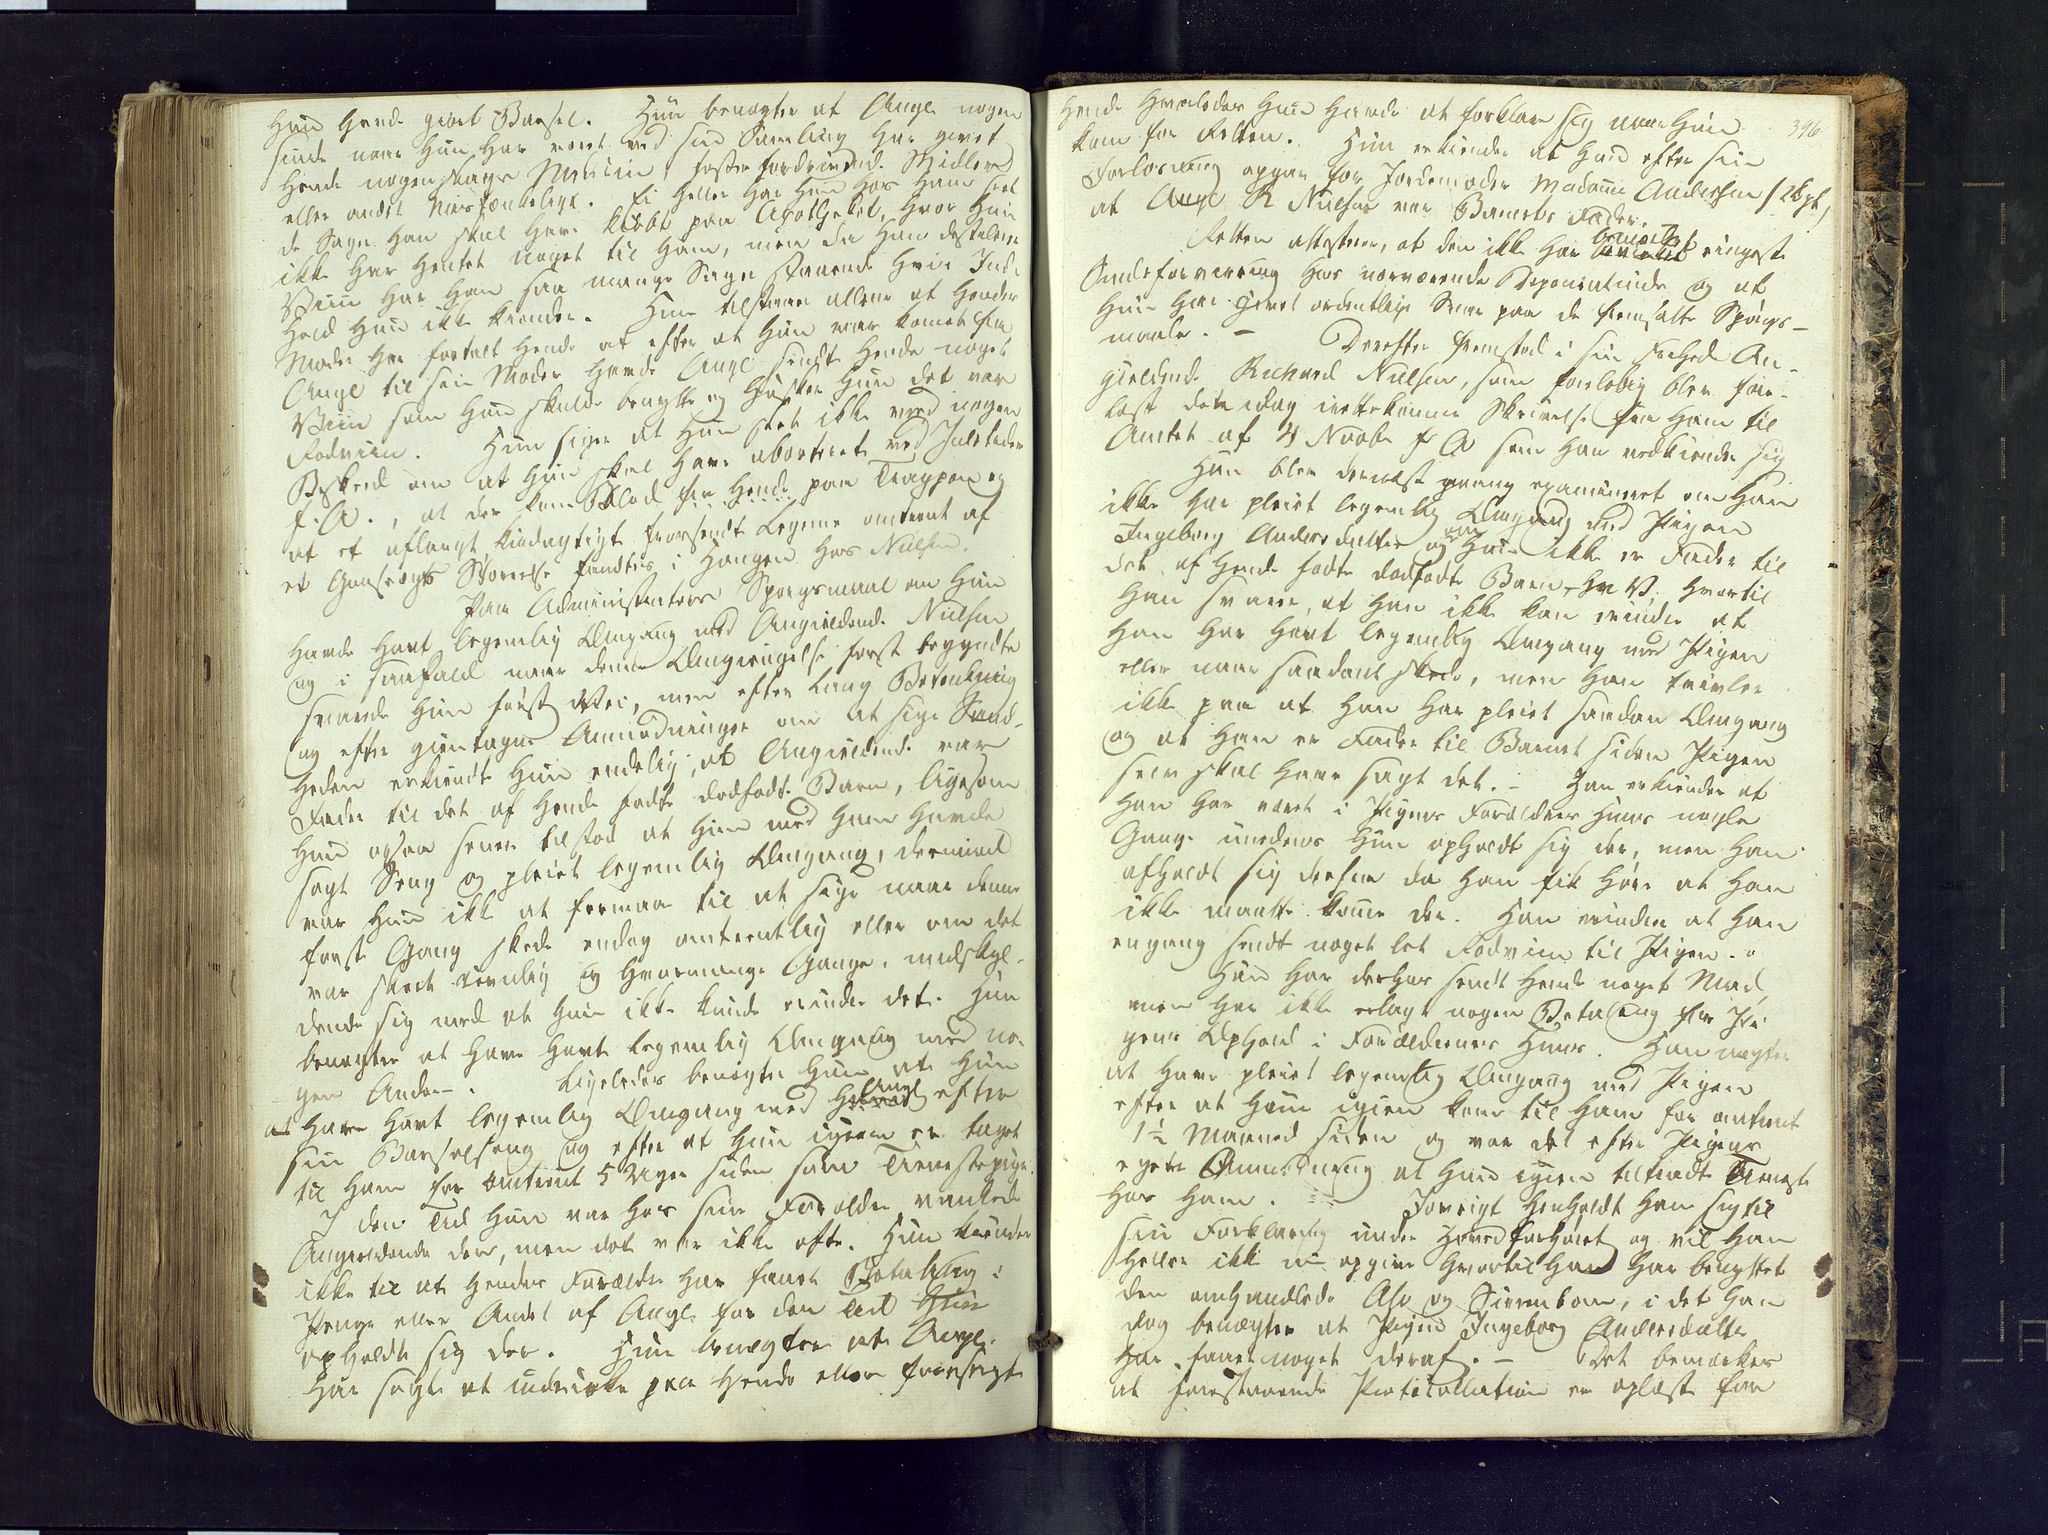 Hun havde gjort Barsel. Hun benægter at Angl. nogen
sinde naar hun har været ved sin Samling har givet
hende nogensomhelst Medicin, fosterfordrivende Midler
eller andet Mistænkeligt. Ei heller har hun hos ham seet
de Sager han skal have kiøbt paa Apotheket, hvor hun
ikke har hentet noget til ham, men da han destilerer
Viin har han saa mange Sager staaende hvis Ind-
hold hun ikke kiender. Hun tilstaaer allene at hendes
Moder har fortalt hende at efter at hun var kommen fra
Angl til sin Moder havde Angl sendt hende noget
Viin som hun skulde benytte og husker hun det var
Rødviin. Hun siger at hun slet ikke veed nogen
Beskeed om at hun skal have aborteret ved Juletider
f. A., at der kom Blod fra hende paa Trappen og
at et aflangt kiødagtigt Legeme omtrent af
et Gaaseægs Størrelse fandtes i Haugen hos Nielsen.
Paa Administrators Spørgsmaal om hun
havde havt legemlig Omgang med Angieldende Nielsen
og i saafald naar denne Omgiængelse først begyndte
svarede hun først Nei, men efter lang Betænkning
og efter gientagne Anmodninger om at sige Sand-
heden erkiendte hun endelig, at Angieldende var
Fader til det af hende fødte dødfødte Barn, ligesom
hun ogsaa senere tilstod at hun med ham havde
søgt Seng og pleiet legemlig Omgang, derimod
var hun ikke at formaae til at sige naar denne
første Gang skede endog omtrentlig eller om det
var skeet jevnlig og hvormange Gange, undskyl-
dende sig med at hun ikke kunde erindre det. Hun
benægter at have havt legemlig Omgang med no-
gen Anden. Ligeledes benægter hun at hun
at have havt legemlig Omgang med Angl efter
sin Barselseng og efter at hun igien er taget
til ham for omtrent 5 Uger siden som Tienestepige.
I den Tid hun var hos sine Forældre vankede
Angieldende der, men det var ikke ofte. Hun kiender
ikke til at hendes Forældre har faaet Betaling i
Penge eller Andet af Angl. for den Tid hun
opholdt sig der. Hun benægter at Angl.
har søgt at indvirke paa hende eller foresagt
396
hende hvorledes hun havde at forklare sig naar hun
kom for Retten. Hun erkiender at hun efter sin
Forløsning opgav for Jordemoder Madame Andersen
at Angl R Nielsen var Barnets Fader.
Retten attesterer, at den ikke har bemærket ringeste
Sindsforvirring hos nærværende Deponentinde og at
hun har givet ordentlige Svar paa de fremsatte Spørgs-
maale. – Derefter fremstod i sin Frihed An-
gieldende Richard Nielsen, som foreløbig blev fore-
læst den idag irettekomne Skrivelse fra ham til
Amtet af 4 Novbr f A som han vedkiender sig
Han blev dernæst examineret om han
ikke har pleiet legemlig Omgang med Pigen
Ingeborg Andersdatter og om han ikke er Fader til
det af hende fødte dødfødte Barn, hvortil
han svarer, at han ikke kan erindre at
han har havt legemlig Omgang med Pigen
eller naar saadant skede, men han tvivler
ikke paa at han har pleiet saadan Omgang
og at han er Fader til Barnet siden Pigen
selv skal have sagt det. – Han erkiender at
han har været i Pigens Forældres Huus nogle
Gange imedens hun opholdt sig der, men han
afholdt sig derfra da han fik høre at han
ikke maatte komme der. Han erindrer at han
engang sendt noget let Rødviin til Pigen.
Han har derhos sendt hende noget Mad,
men har ikke erlagt nogen Betaling for Pi-
gens Ophold i Forældrenes Huus. Han nægter
at have pleiet legemlig Omgang med Pigen
efter at hun igien kom til ham for omtrent
1½ Maaned siden og var det efter Pigens
egen Anmodning at hun igien tiltraadte Tieneste
hos ham. Iøvrigt henholdt han sig til
sin Forklaring under Hovedforhøret og vil han
heller ikke nu opgive hvortil han har benyttet
den omhandlede Aloe og Sevenbom, i det han
dog benægter at Pigen Ingeborg Andersdatter
har faaet noget deraf. – Det bemærkes
at forestaaende Protocollation er oplæst for